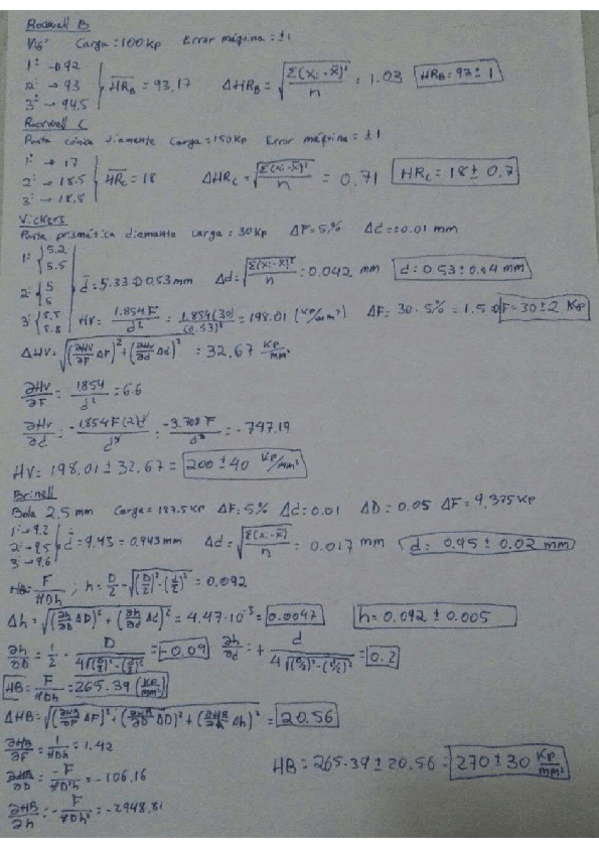 Rockwell B
1/16" Carga = 100 Kp Error máquina = ±1
1ª → 92
2ª → 93
3ª → 94.5
HR_B = 93,17 ΔHR_B = √(Σ(xi - x̄)²/n) = 1.03 HR_B = 93 ± 1
Rockwell C
Punta cónica diamante Carga = 150 Kp Error máquina = ±1
1ª → 17
2ª → 18.5
3ª → 18.5
HR_C = 18 ΔHR_C = √(Σ(xi - x̄)²/n) = 0.71 HR_C = 18 ± 0.7
Vickers
Punta prismática diamante carga: 30 Kp ΔF = 5% Δd = ±0.01 mm
1ª { 5.2
5.5
2ª { 5
5
3ª { 5.5
5.8
d̄ = 5.33 → 0.53 mm Δd = √(Σ(xi - x̄)²/n) = 0.042 mm d = 0.53 ± 0.04 mm
HV = 1.854F/d² = 1.854(30)/(0.53)² = 198.01 (Kp/mm²) ΔF = 30 · 5% = 1.5 → F = 30 ± 2 Kp
ΔHV = √((∂HV/∂F ΔF)² + (∂HV/∂d Δd)²) = 32.67 Kp/mm²
∂HV/∂F = 1.854/d² = 6.6
∂HV/∂d = -1.854F(2)d/d⁴ = -3.708F/d³ = -747.19
HV = 198.01 ± 32.67 = 200 ± 40 Kp/mm²
Brinell
Bola 2,5 mm Carga = 187.5 Kp ΔF = 5% Δd = 0.01 ΔD = 0.05 ΔF = 9,375 Kp
1ª → 9.2
2ª → 9.5
3ª → 9.6
d̄ = 9.43 = 0.943 mm Δd = √(Σ(xi - x̄)/n) = 0.017 mm d = 0.95 ± 0.02 mm
HB = F/πDh ; h = D/2 - √((D/2)² - (d/2)²) = 0.092
Δh = √((∂h/∂D ΔD)² + (∂h/∂d Δd)²) = 4.47·10⁻³ = 0.0047 h = 0.092 ± 0.005
∂h/∂D = 1/2 - D/(4√((D/2)² - (d/2)²)) = -0.04 ∂h/∂d = + d/(4√((D/2)² - (d/2)²)) = 0.2
HB = F/πDh = 265.39 (Kp/mm²)
ΔHB = √((∂HB/∂F ΔF)² + (∂HB/∂D ΔD)² + (∂HB/∂h Δh)²) = 20.56
∂HB/∂F = 1/πDh = 1.42
∂HB/∂D = -F/πD²h = -106.16
HB = 265.39 ± 20.56 = 270 ± 30 Kp/mm²
∂HB/∂h = -F/πDh² = -2948.81